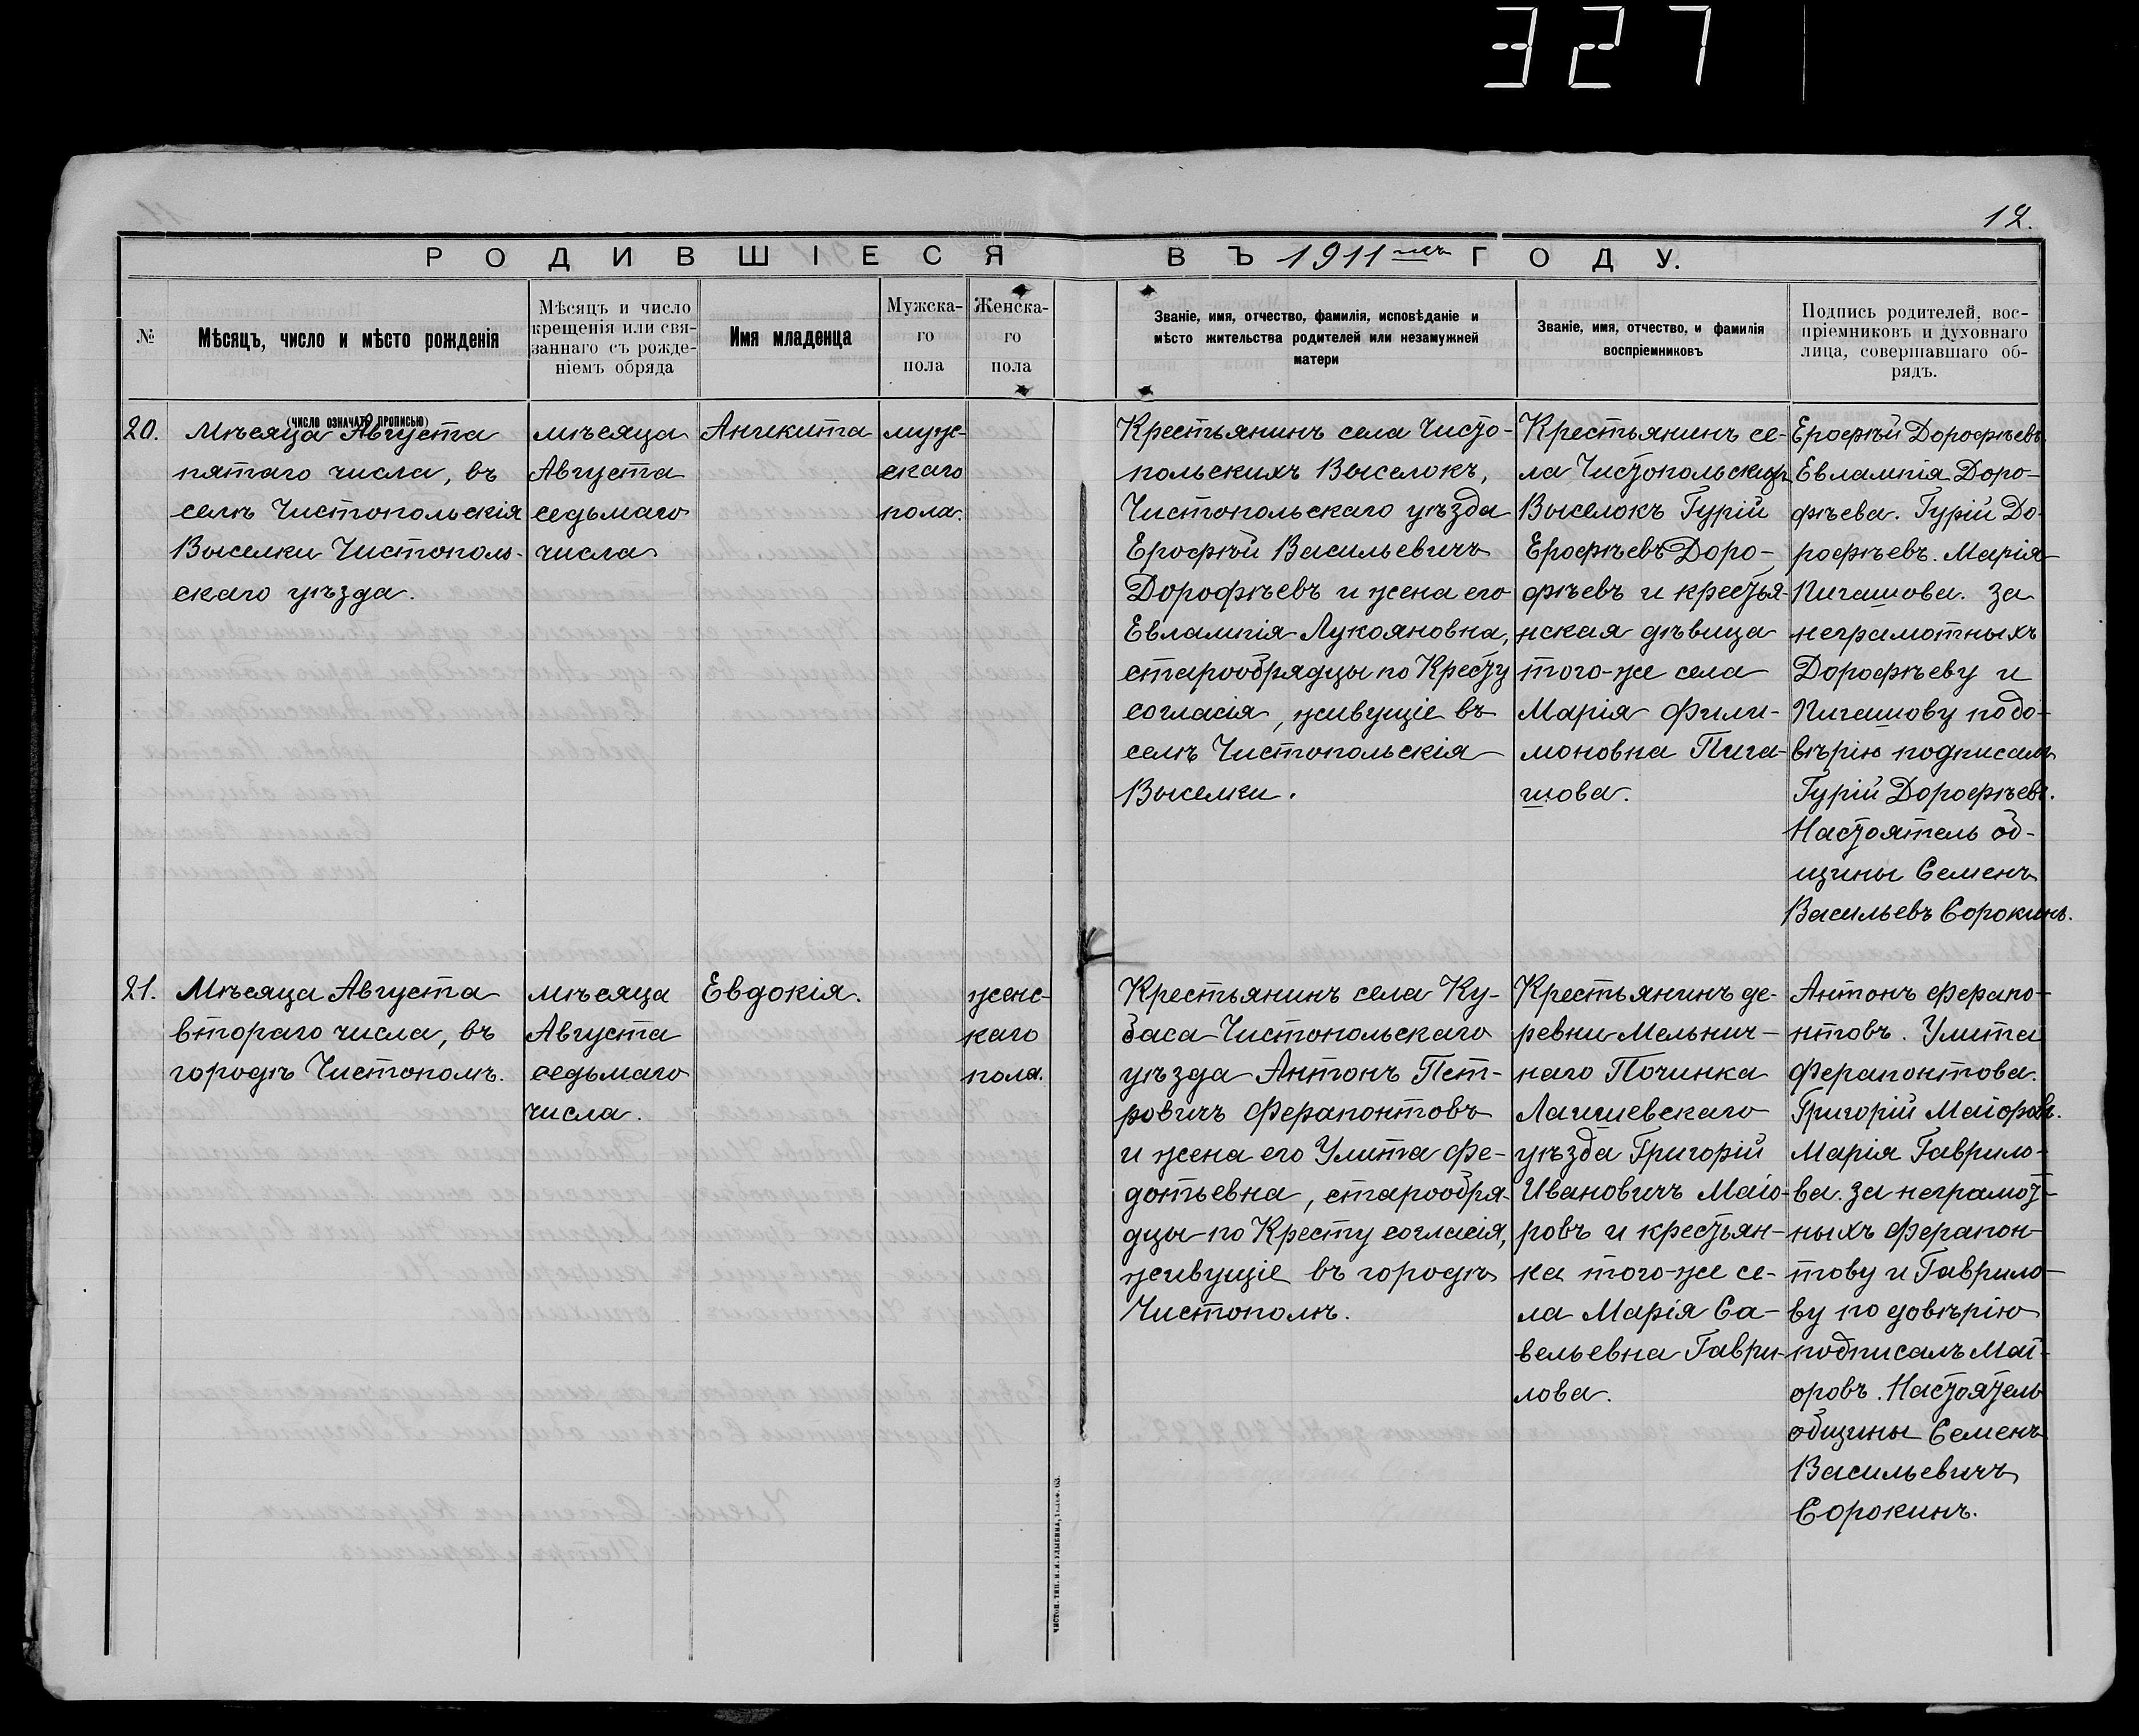 327
12.
РОДИВШІЕСЯ ВЪ 1911мъ ГОДУ.
№
Мѣсяцъ, число и мѣсто рожденія
(число означать прописью)
Мѣсяцъ и число
крещенія или свя-
заннаго съ рожде-
ніемъ обряда
Имя младенца
Мужска-
го
пола
Женска-
го
пола
Званіе, имя, отчество, фамилія, исповѣданіе и
мѣсто жительства родителей или незамужней
матери
Званіе, имя, отчество, и фамилія
воспріемниковъ
Подпись родителей, вос-
пріемниковъ и духовнаго
лица, совершавшаго об-
рядъ.
20.
Мѣсяца Августа
пятаго числа, въ
селѣ Чистопольскія
Выселки Чистополь-
скаго уѣзда.
мѣсяца
Августа
седьмаго
числа
Аникита
муж-
скаго
пола.
Крестьянинъ села Чисто-
польскихъ Выселокъ,
Чистопольскаго уѣзда
Ерофѣй Васильевичъ
Дорофѣевъ и жена его
Евлампія Лукояновна,
старообрядцы по Кресту
согласія, живущіе въ
селѣ Чистопольскія
Выселки.
Крестьянинъ се-
ла Чистопольскихъ
Выселокъ Гурій
Ерофѣевъ Доро-
фѣевъ и крестья-
нская дѣвица
того-же села
Марія Фили-
моновна Пига-
шова.
Ерофѣй Дорофѣевъ
Евлампія Доро-
фѣева. Гурій До-
рофѣевъ. Марія
Пигашова. За
неграмотныхъ
Дорофѣеву и
Пигашову по до-
вѣрію подписалъ
Гурій Дорофѣевъ.
Настоятель об-
щины Семенъ
Васильевъ Сорокинъ.
21.
Мѣсяца Августа
втораго числа, въ
городѣ Чистополѣ.
мѣсяца
Августа
седьмаго
числа.
Евдокія.
женс-
каго
пола.
Крестьянинъ села Ку-
баса Чистопольскаго
уѣзда Антонъ Пет-
ровичъ Ферапонтовъ
и жена его Улита Фе-
дотьевна, старообря-
дцы по Кресту согласія,
живущіе въ городѣ
Чистополѣ.
Крестьянинъ де-
ревни Мельнич-
наго Починка
Лаишевскаго
уѣзда Григорій
Ивановичъ Маіо-
ровъ и крестьян-
ка того-же се-
ла Марія Са-
вельевна Гаври-
лова.
Антонъ Ферапо-
нтовъ. Улита
Ферапонтова.
Григорій Маіоровъ.
Марія Гаврило-
ва. За неграмот-
ныхъ Ферапон-
тову и Гаврило-
ву по довѣрію
подписалъ Маі-
оровъ. Настоятель
общины Семенъ
Васильевичъ
Сорокинъ.